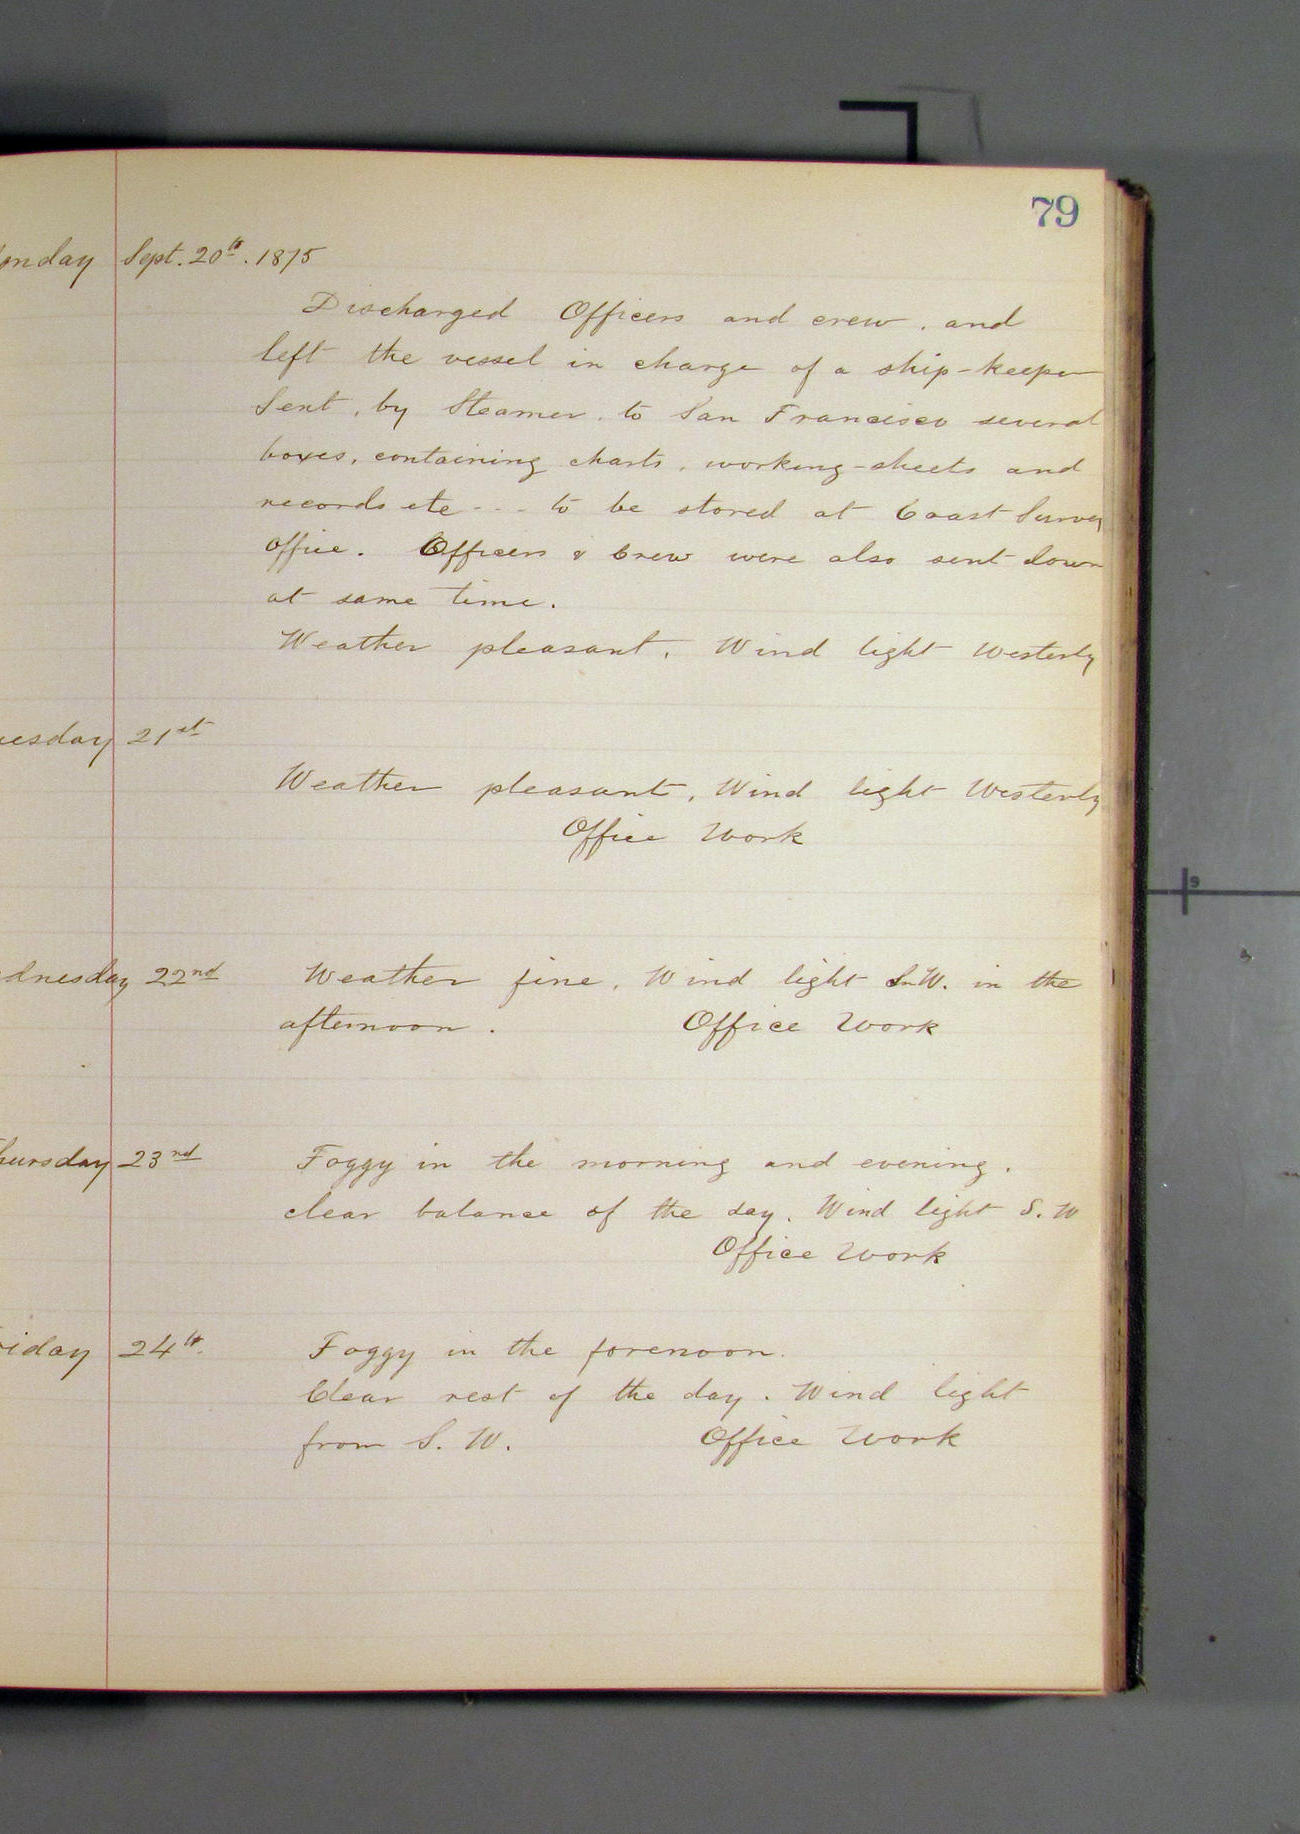 79
onday Sept. 20th. 1875
Discharged Officers and crew, and
left the vessel in charge of a ship-keeper
Sent, by Steamer, to San Francisco several
boxes, containing charts, working-sheets and
records etc --- to be stored at Coast Survey
office. Officers & Crew were also sent down
at same time.
Weather pleasant, Wind light Westerly
uesday 21st
Weather pleasant, Wind light Westerly
Office Work
dnesday 22nd Weather fine, Wind light S.W. in the
afternoon. Office Work
hursday 23nd Foggy in the morning and evening,
clear balance of the day. Wind light S. W
Office Work
riday 24th. Foggy in the forenoon.
Clear rest of the day. Wind light
from S. W. Office Work